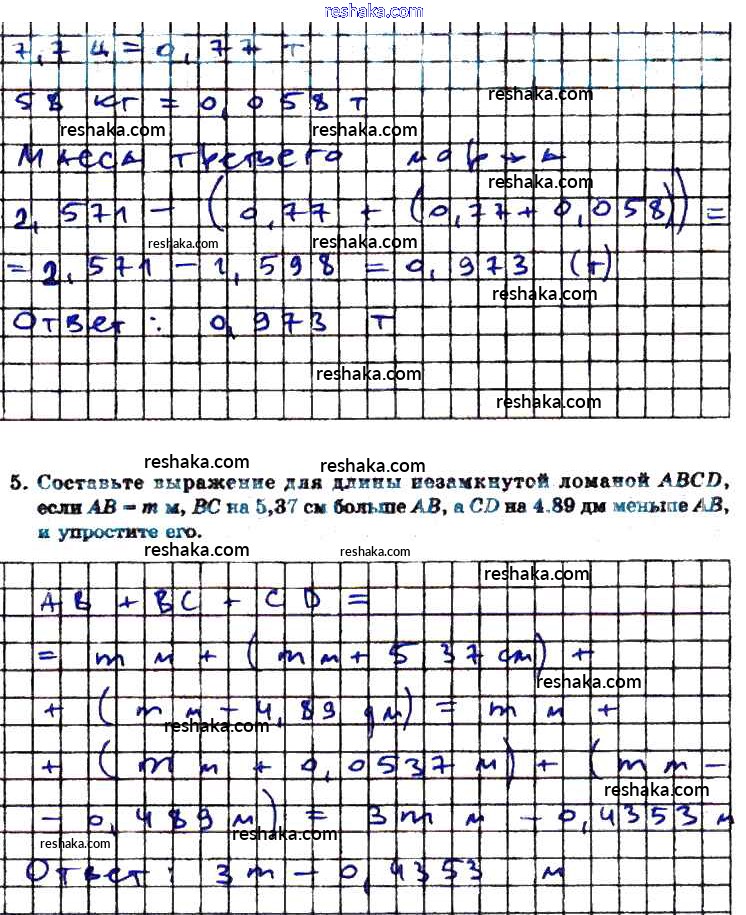 reshaka.com
7,7 ц = 0,77 т
58 кг = 0,058 т
reshaka.com
reshaka.com
Масса третьего моржа
reshaka.com
2,571 - (0,77 + (0,77 + 0,058)) =
reshaka.com reshaka.com
= 2,571 - 1,598 = 0,973 (т)
reshaka.com
Ответ: 0,973 т
reshaka.com
reshaka.com
reshaka.com reshaka.com
5. Составьте выражение для длины незамкнутой ломаной ABCD,
если AB = m м, BC на 5,37 см больше AB, а CD на 4,89 дм меньше AB,
и упростите его.
reshaka.com reshaka.com
reshaka.com
AB + BC + CD =
= m м + (m м + 5 37 см) +
reshaka.com
+ (m м - 4,89 дм) = m м +
reshaka.com
+ (m м + 0,0537 м) + (m м -
reshaka.com
- 0,489 м) = 3m м - 0,4353 м
reshaka.com reshaka.com
Ответ: 3m - 0,4353 м